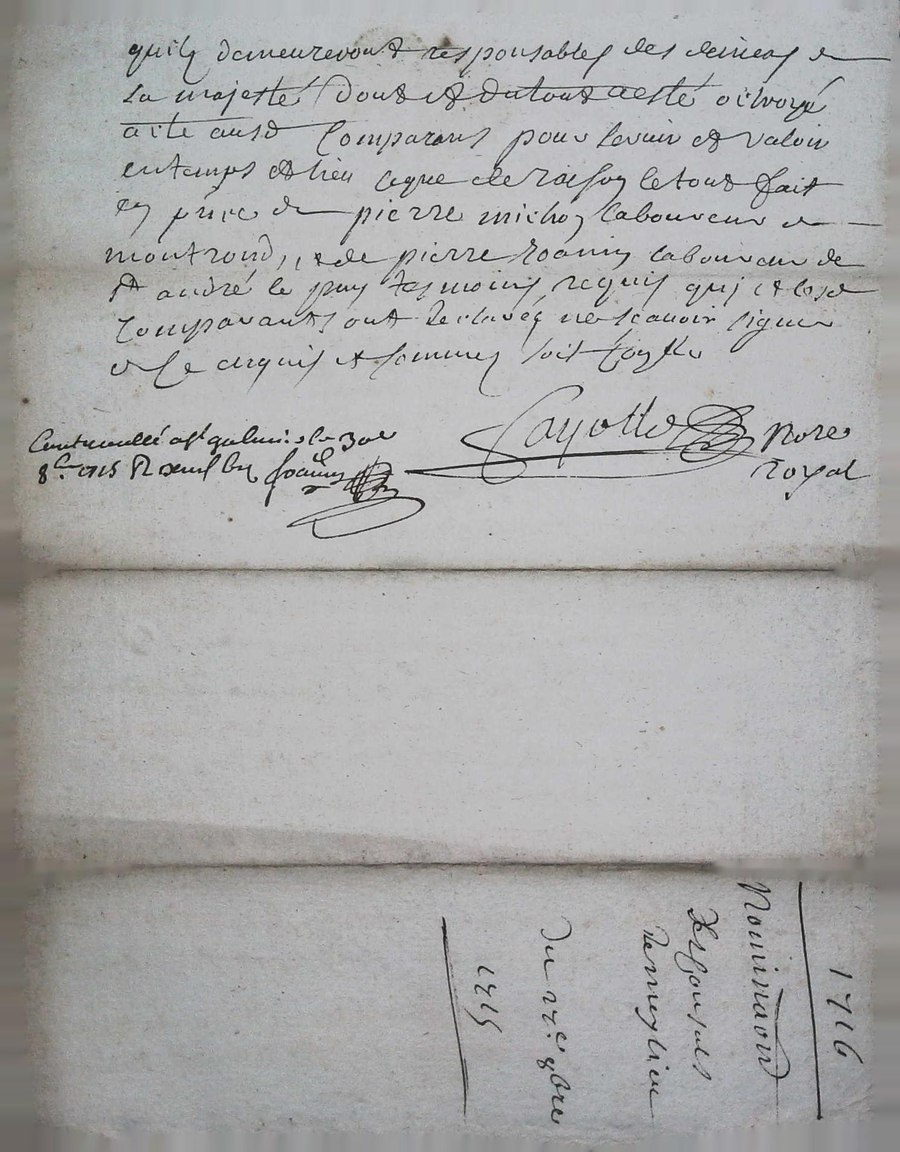 quilz demeureront responsables des deniers de
Sa majesté dont et du tout a esté octroyé
acte ausd Comparans pour servir et valoir
en temps et lieu ce que de raison le tout fait
en pnce de pierre michon laboureur de
montrond, et de pierre Joanin laboureur de
St andré le puy tesmoins requis qui et lesd
Comparants ont declarés ne scavoir signer
de ce enquis et sommes soit
Cayotte Nore
Royal
Controuellé a st galmier le 30e
8bre 1715 R neuf s
1716
Nominaōn
des Consuls
de meylieu
Du 27e 8bre
1715